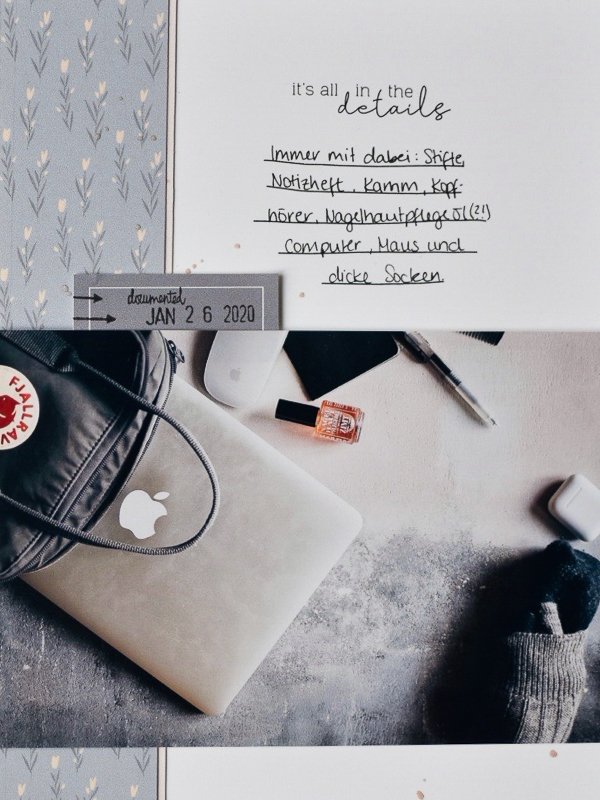 it's all in the
details
Immer mit dabei: Stifte,
Notizheft, Kamm, Kopf-
hörer, Nagelhautpflegeöl(?!)
Computer, Maus und
dicke Socken.
documented
JAN 26 2020
FJÄLLRÄV